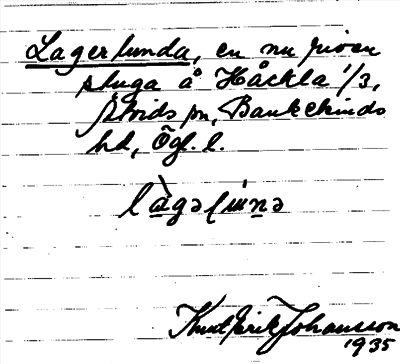 Lagerlunda, en nu riven
stuga å Håckla 1/3,
Åtvids sn, Bankekinds
hd, Ögl. l.
Knut Erik Johansson
1935